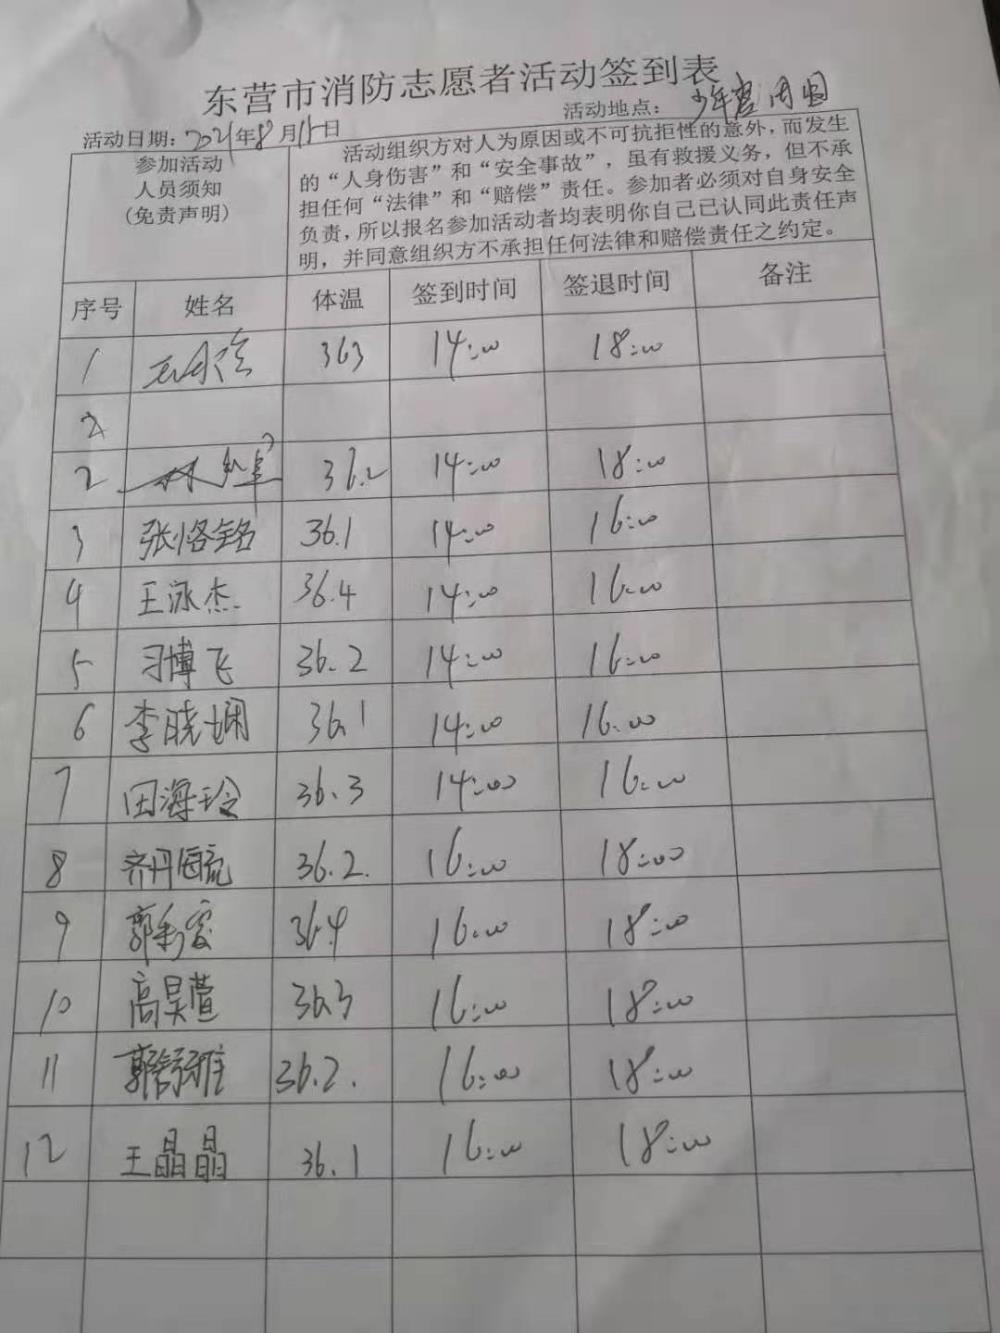 东营市消防志愿者活动签到表
活动日期：2021年8月15日 活动地点：少年宫周围
参加活动
人员须知
（免责声明）
活动组织方对人为原因或不可抗拒性的意外，而发生
的“人身伤害”和“安全事故”，虽有救援义务，但不承
担任何“法律”和“赔偿”责任。参加者必须对自身安全
负责，所以报名参加活动者均表明你自己已认同此责任声
明，并同意组织方不承担任何法律和赔偿责任之约定。
序号 姓名 体温 签到时间 签退时间 备注
1 363 14:00 18:00
2
2 36.2 14:00 18:00
3 张恪铭 36.1 14:00 16:00
4 王泳杰 36.4 14:00 16:00
5 习博飞 36.2 14:00 16:00
6 李晓娴 36.1 14:00 16:00
7 田海玲 36.3 14:00 16:00
8 齐丹 36.2. 16:00 18:00
9 郭 36.4 16:00 18:00
10 高昊萱 36.3 16:00 18:00
11 郭舒雅 36.2. 16:00 18:00
12 王晶晶 36.1 16:00 18:00